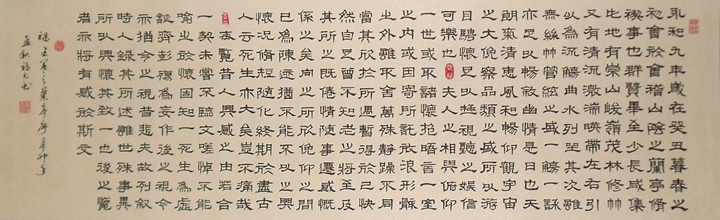 永和九年歲在癸丑暮春之
初會於會稽山陰之蘭亭脩
稧事也群賢畢至少長咸集
此地有崇山峻嶺茂林脩竹
又有清流激湍暎帶左右引
以為流觴曲水列坐其次雖
無絲竹管絃之盛一觴一詠
亦足以暢敘幽情是日也天
朗氣清惠風和暢仰觀宇宙
之大俯察品類之盛所以遊
目騁懷足以極視聽之娛信
可樂也夫人之相與俯仰
一世或取諸懷抱晤言一室
之內或因寄所託放浪形骸
之外雖趣舍萬殊靜躁不同
當其欣於所遇暫得於己快
然自足曾不知老之將至及
其所之既惓情隨事遷感慨
係之矣向之所欣俛仰之閒
已為陳迹猶不能不以之興
懷況脩短隨化終期於盡古
人云死生亦大矣豈不痛哉
每覽昔人興感之由若合
一契未嘗不臨文嗟悼不能
喻之於懷固知一死生為虛
誕齊彭殤為妄作後之視今
亦猶今之視昔悲夫故列敘
時人錄其所述雖世殊事異
所以興懷其致一也後之覽
者亦將有感於斯文